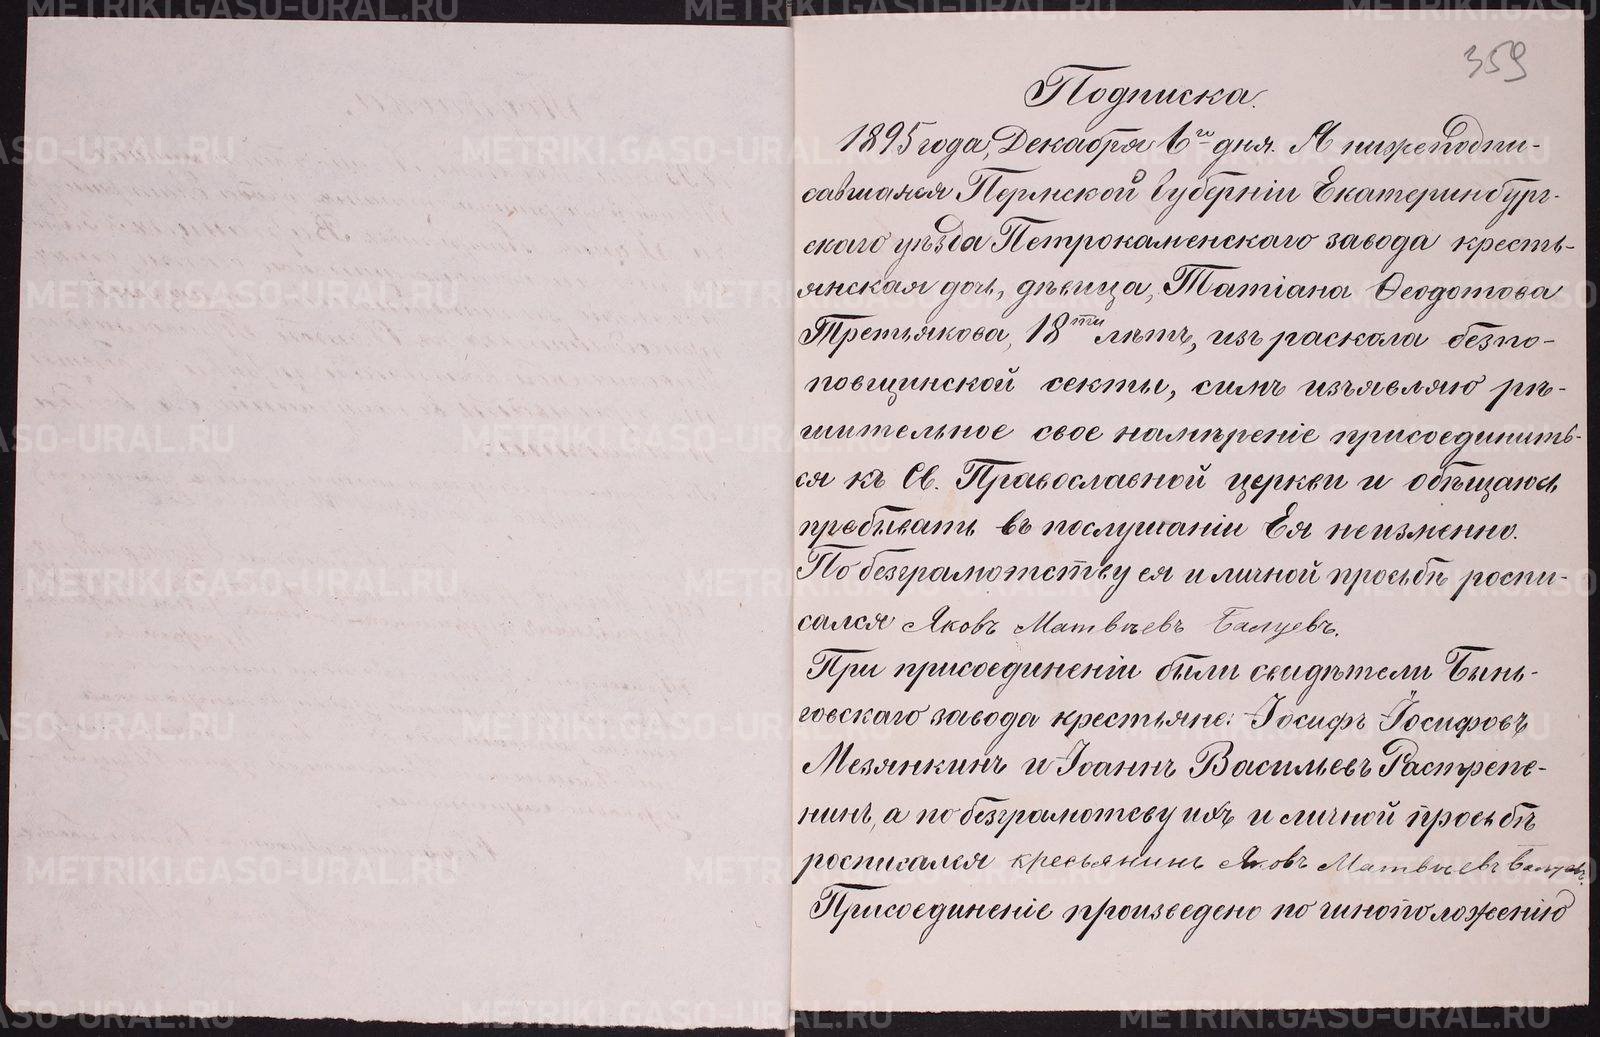 359
Подписка.
1895 года, Декабря 6го дня. Я нижеподпи-
савшаяся Пермской Губернiи Екатеринбург-
скаго уѣзда Петрокаменскаго завода кресть-
янская дочь, дѣвица, Татiана Ѳеодотова
Третьякова, 18ти лѣтъ, изъ раскола безпо-
повщинской секты, симъ изъявляю рѣ-
шительное свое намѣренiе присоединить-
ся къ Св. Православной церкви и обѣщаюсь
пребывать въ послушанiи Ея неизменно.
По безграмотству ея и личной просьбѣ роспи-
сался Яковъ Матвѣевъ Балуевъ.
При присоединенiи были свидѣтели Бынь-
говскаго завода крестьяне: Iосифъ Iосифовъ
Мезянкинъ и Iоаннъ Васильевъ Растрепе-
нинъ, а по безграмотсву ихъ и личной просьбѣ
росписался кресьянинъ Яковъ Матвѣевъ Балуевъ.
Присоединенiе произведено по чиноположенiю
METRIKI.GASO-URAL.RU